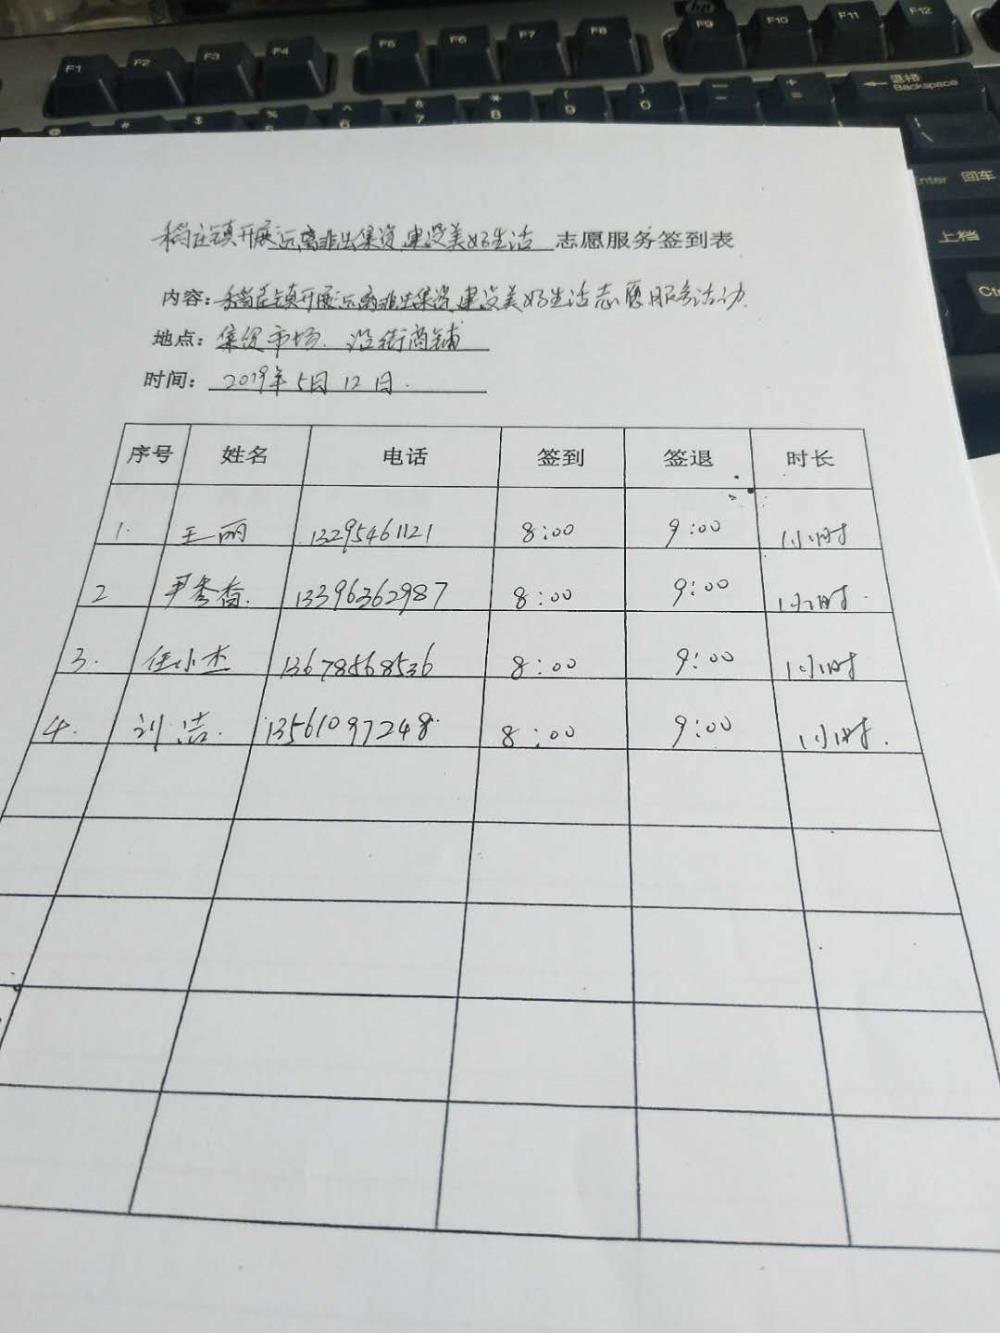 F1 F2 F3 F4 F5 F6 F7 F8 F9 F10 F11 F12
hp
退格
Backspace
Enter 回车
上档
Ctr
稻庄镇开展远离非法集资,建设美好生活 志愿服务签到表
内容:稻庄镇开展远离非法集资建设美好生活志愿服务活动.
地点:集贸市场、沿街商铺
时间:2019年5月12日.
序号 姓名 电话 签到 签退 时长
1. 王丽 13295461121 8:00 9:00 1小时
2 尹秀香. 13396362987 8:00 9:00 1小时.
3. 任小杰 13678568536 8:00 9:00 1小时
4. 刘洁. 13561097248. 8:00 9:00 1小时.